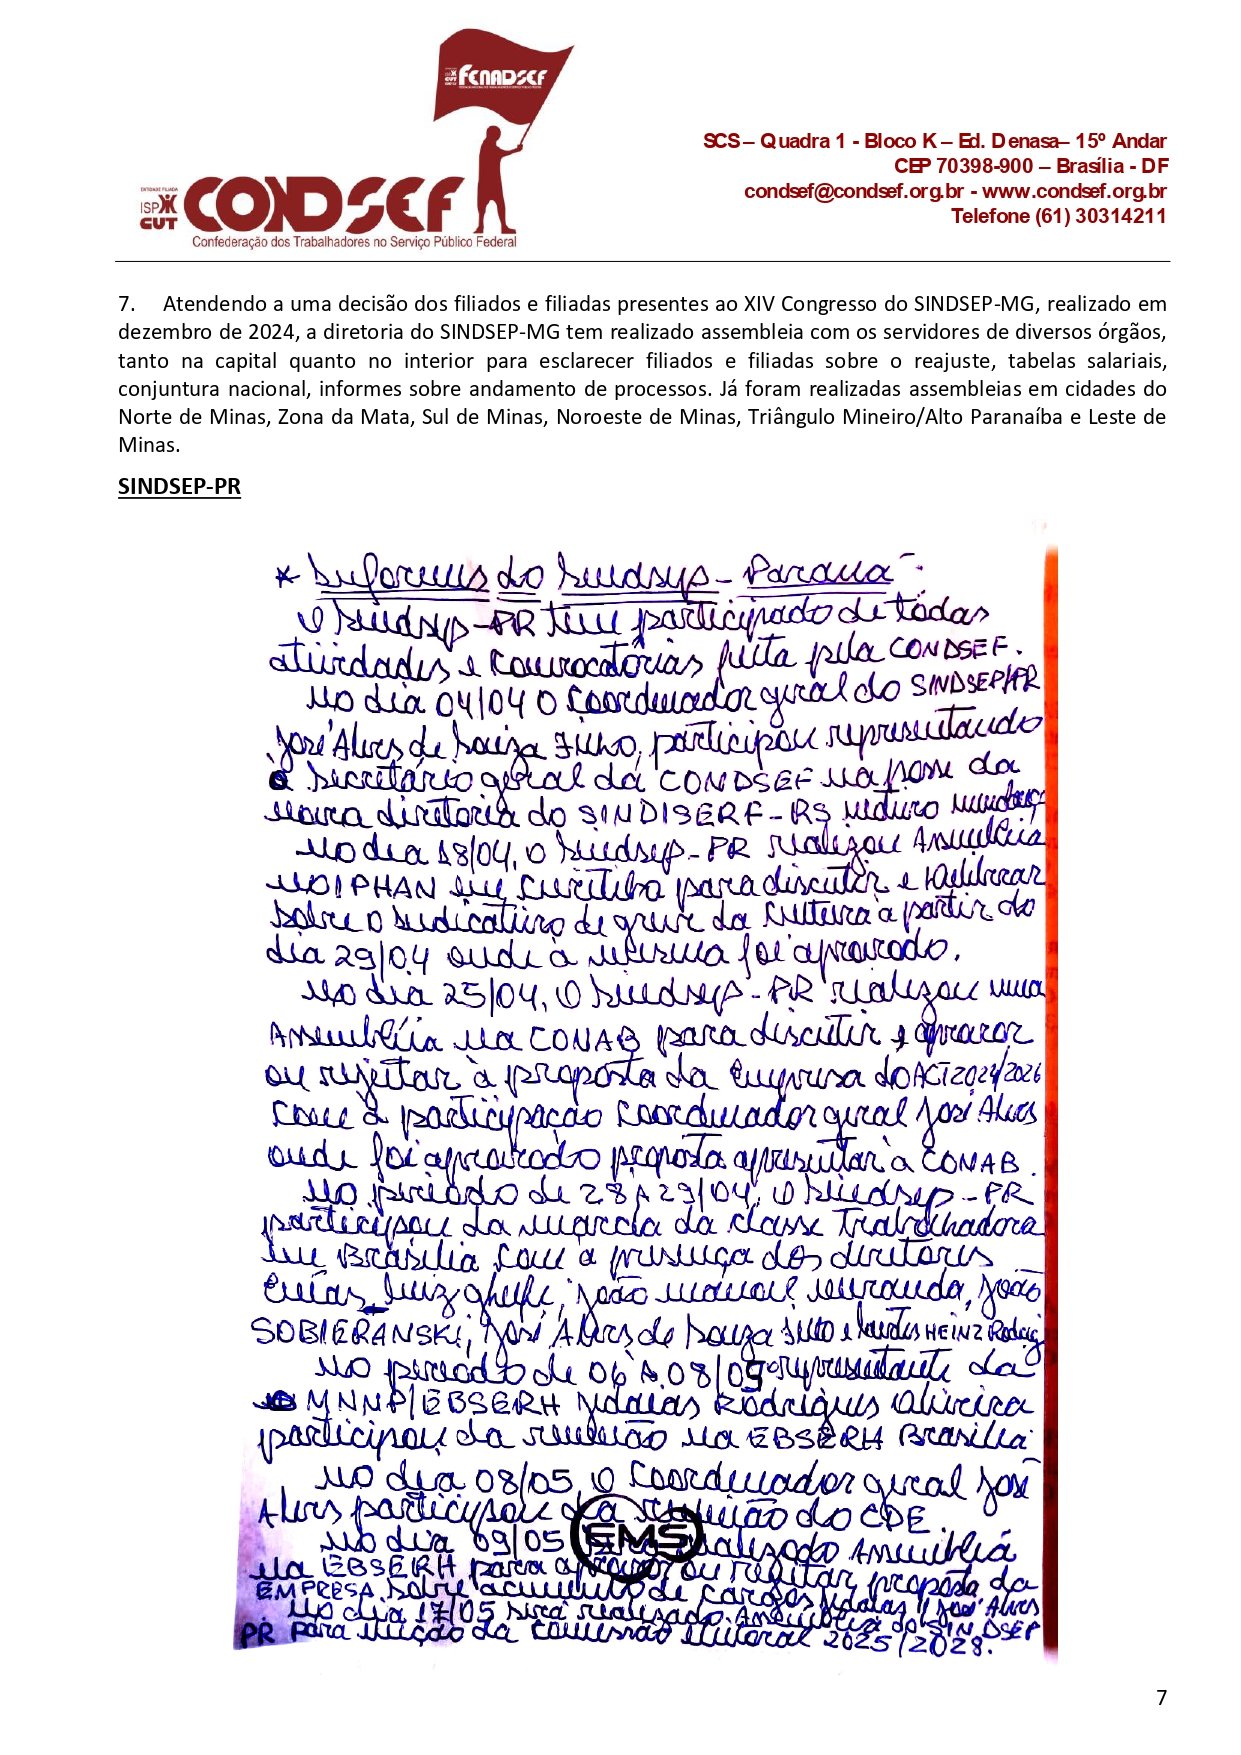 FENADSEF
ENTIDADE FILIADA
ISP
CUT
CONDSEF
Confederação dos Trabalhadores no Serviço Público Federal
SCS – Quadra 1 - Bloco K – Ed. Denasa– 15º Andar
CEP 70398-900 – Brasília - DF
condsef@condsef.org.br - www.condsef.org.br
Telefone (61) 30314211
7. Atendendo a uma decisão dos filiados e filiadas presentes ao XIV Congresso do SINDSEP-MG, realizado em
dezembro de 2024, a diretoria do SINDSEP-MG tem realizado assembleia com os servidores de diversos órgãos,
tanto na capital quanto no interior para esclarecer filiados e filiadas sobre o reajuste, tabelas salariais,
conjuntura nacional, informes sobre andamento de processos. Já foram realizadas assembleias em cidades do
Norte de Minas, Zona da Mata, Sul de Minas, Noroeste de Minas, Triângulo Mineiro/Alto Paranaíba e Leste de
Minas.
SINDSEP-PR
* Informes do Sindsep - Parana -
O Sindsep-PR tem participado de todas
atividades e convocatórias feita pela CONDSEF.
No dia 04/04 o Coordenador geral do SINDSEP/PR
José Alves de Souza Filho, participou representando
o Secretário geral da CONDSEF na posse da
nova diretoria do SINDISERF-RS
No dia 18/04, o Sindsep-PR realizou Assembléia
no IPHAN em Curitiba para discutir e deliberar
sobre o indicativo de greve da Cultura a partir do
dia 29/04 onde à mesma foi aprovado.
No dia 25/04, o Sindsep-PR realizou uma
Assembléia na CONAB para discutir e aprovar
ou rejeitar à proposta da Empresa do ACT 2024/2026
com à participação Coordenador geral José Alves
onde foi aprovado proposta apresentar à CONAB.
No período de 28 A 29/04, o Sindsep-PR
participou da marcha da classe Trabalhadora
em Brasilia com a presença dos diretores
Enéas, Luiz, João Manoel Miranda, João
SOBIERANSKI, José Alves de Souza Filho e HEINZ Rodrig
No periodo de 06 A 08/05 o representante da
MNNP/EBSERH Rodrigues Oliveira
participou da reunião na EBSERH Brasilia
No dia 08/05 o Coordenador geral José
Alves participou da reunião do CDE.
No dia 09/05 realizado Assembléia
na EBSERH para aprovar ou rejeitar proposta da
EMPRESA sobre acumulo de cargos José Alves
No dia 17/05 será realizado Assembléia do SINDSEP
PR para eleição da comissão eleitoral 2025/2028.
EMS
7